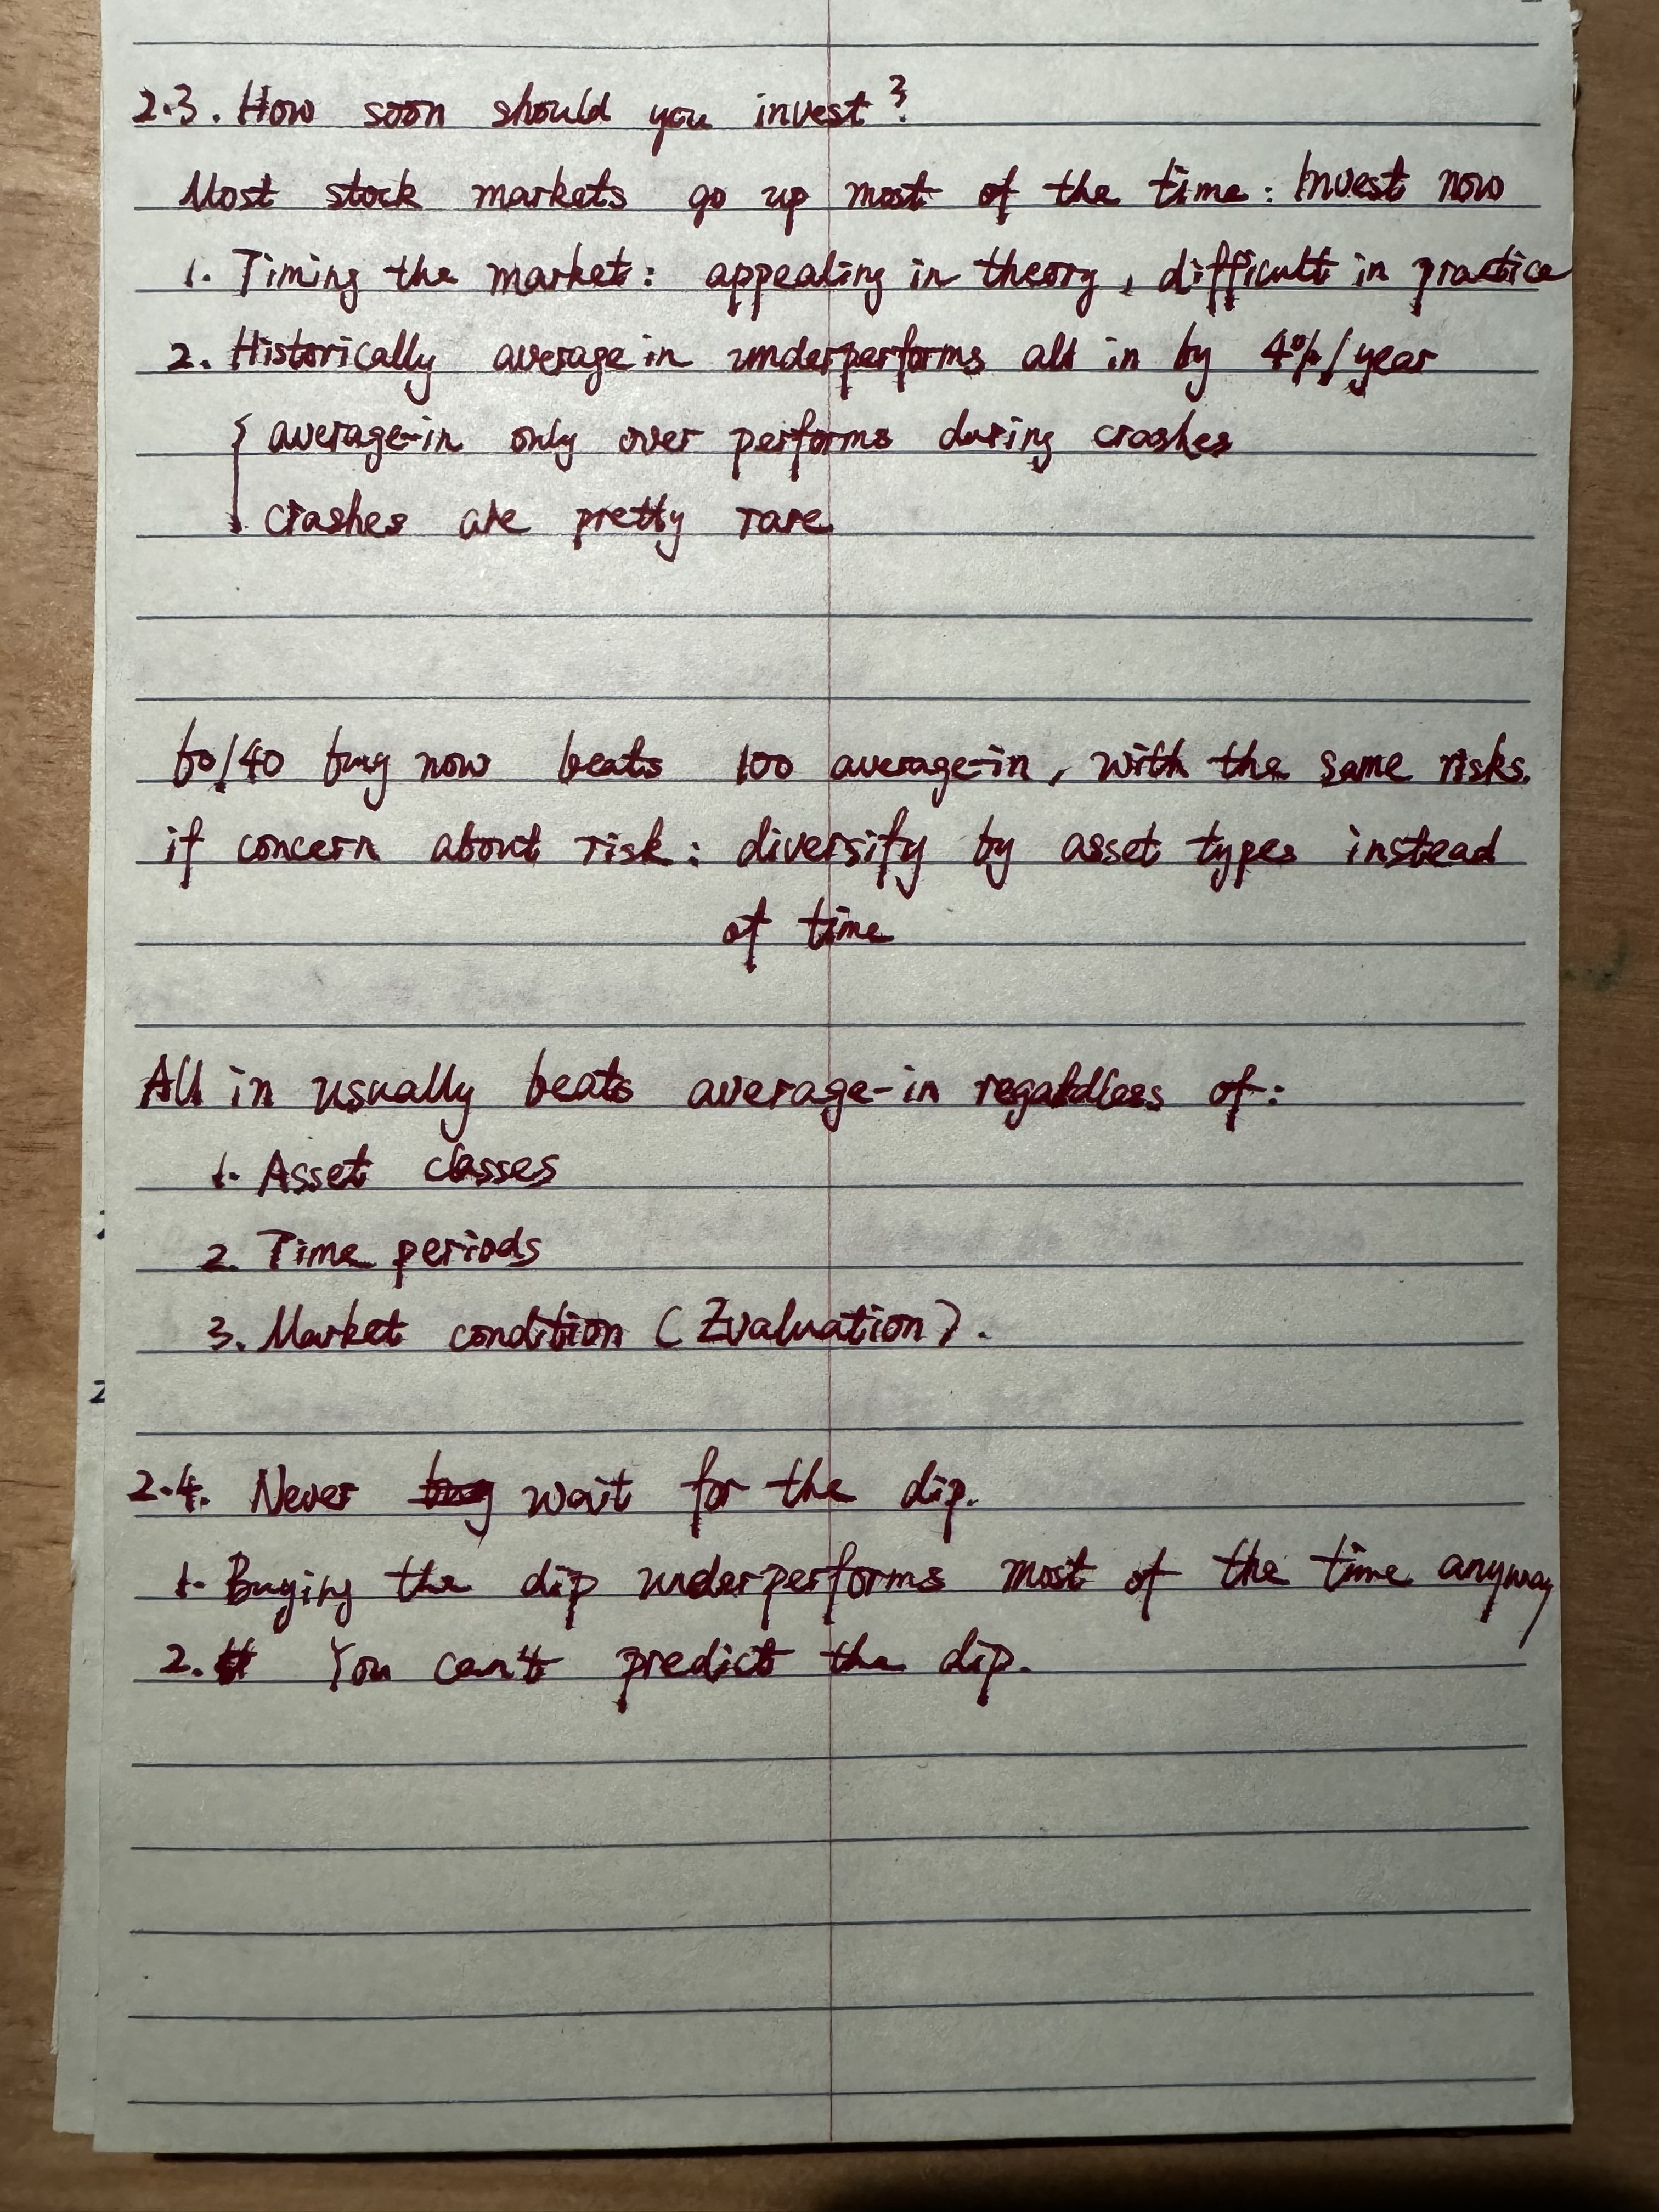 2.3. How soon should you invest?
Most stock markets go up most of the time: Invest now
1. Timing the market: appealing in theory, difficult in practice
2. Historically average in underperforms all in by 4%/year
average-in only over performs during crashes
crashes are pretty rare
60/40 buy now beats 100 average-in, with the same risks.
if concern about risk: diversify by asset types instead
of time
All in usually beats average-in regardless of:
1. Asset classes
2. Time periods
3. Market condition (Evaluation).
2.4. Never buy wait for the dip.
1. Buying the dip underperforms most of the time anyway
2. You can't predict the dip.
2